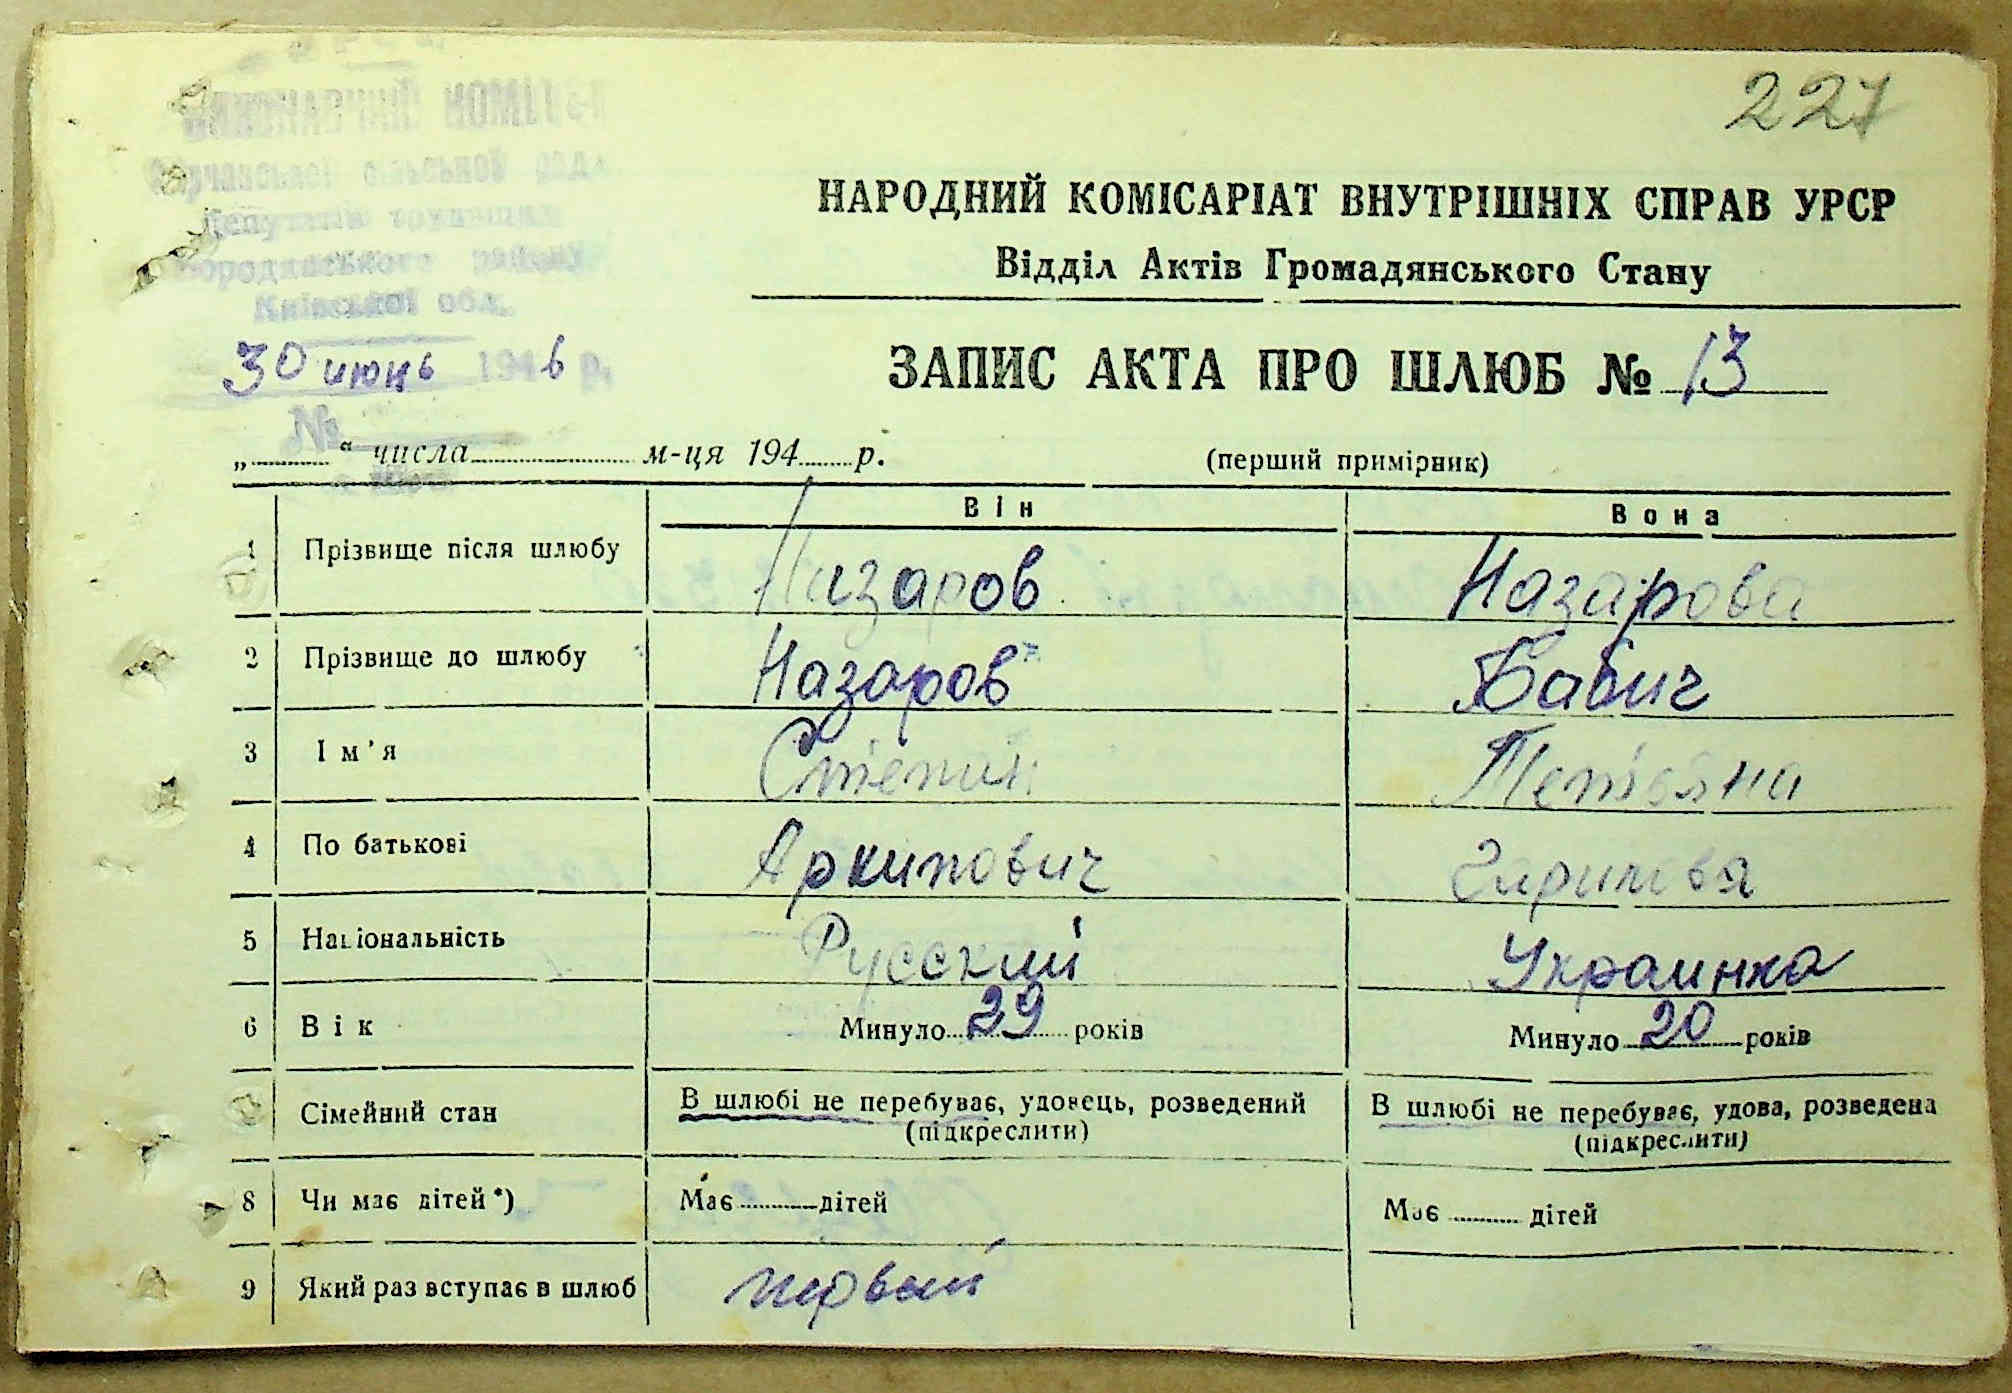 227
ВИКОНАВЧИЙ КОМІТЕТ
сільської ради
Депутатів трудящих
Бородянського району
Київської обл.
30 июнь 1946 р.
№
НАРОДНИЙ КОМІСАРІАТ ВНУТРІШНІХ СПРАВ УРСР
Відділ Актів Громадянського Стану
ЗАПИС АКТА ПРО ШЛЮБ № 13
„ “ числа м-ця 194 р. (перший примірник)
Він Вона
1 Прізвище після шлюбу Назаров Назарова
2 Прізвище до шлюбу Назаров Бабич
3 Ім’я Степан Тетьяна
4 По батькові Архипович
5 Національність Русский Украинка
6 Вік Минуло 29 років Минуло 20 років
Сімейний стан В шлюбі не перебуває, удовець, розведений В шлюбі не перебуває, удова, розведена
(підкреслити) (підкреслити)
8 Чи має дітей *) Має дітей Має дітей
9 Який раз вступає в шлюб первый